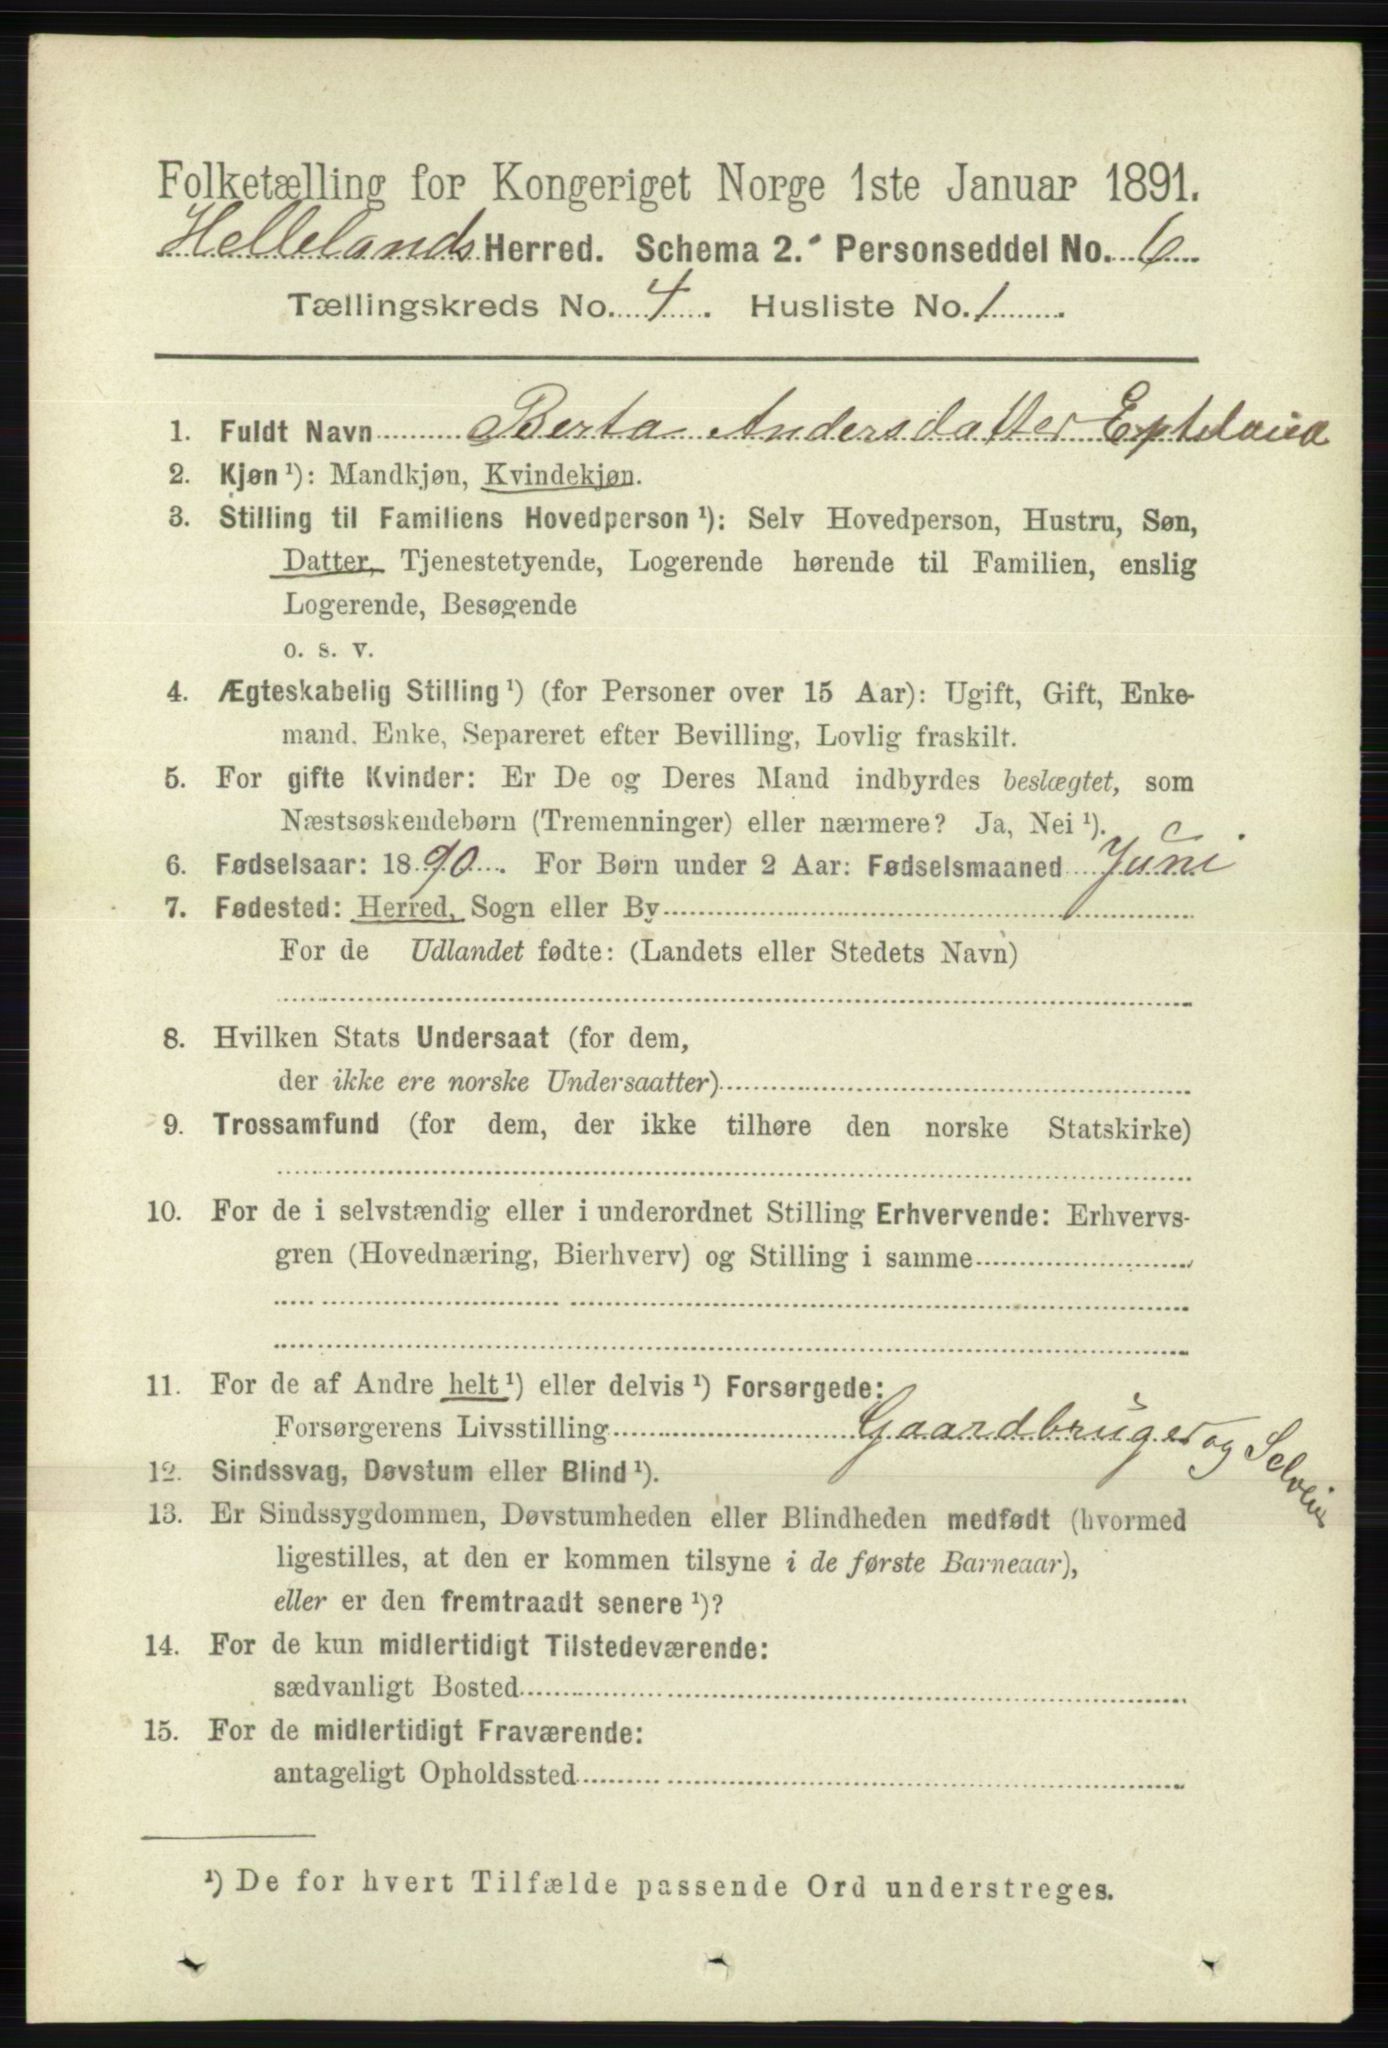 Folketælling for Kongeriget Norge 1ste Januar 1891.
Hellelands Herred. Schema 2. Personseddel No. 6
Tællingskreds No. 4. Husliste No. 1
1. Fuldt Navn Berta Andersdatter
2. Kjøn ¹): Mandkjøn, Kvindekjøn.
3. Stilling til Familiens Hovedperson ¹): Selv Hovedperson, Hustru, Søn,
Datter, Tjenestetyende, Logerende hørende til Familien, enslig
Logerende, Besøgende
o. s. v.
4. Ægteskabelig Stilling ¹) (for Personer over 15 Aar): Ugift, Gift, Enke-
mand, Enke, Separeret efter Bevilling, Lovlig fraskilt.
5. For gifte Kvinder: Er De og Deres Mand indbyrdes beslægtet, som
Næstsøskendebørn (Tremenninger) eller nærmere? Ja, Nei ¹).
6. Fødselsaar: 1890. For Børn under 2 Aar: Fødselsmaaned Juni
7. Fødested: Herred, Sogn eller By
For de Udlandet fødte: (Landets eller Stedets Navn)
8. Hvilken Stats Undersaat (for dem,
der ikke ere norske Undersaatter)
9. Trossamfund (for dem, der ikke tilhøre den norske Statskirke)
10. For de i selvstændig eller i underordnet Stilling Erhvervende: Erhvervs-
gren (Hovednæring, Bierhverv) og Stilling i samme
11. For de af Andre helt ¹) eller delvis ¹) Forsørgede:
Forsørgerens Livsstilling Gaardbruger og Selveier
12. Sindssvag, Døvstum eller Blind ¹).
13. Er Sindssygdommen, Døvstumheden eller Blindheden medfødt (hvormed
ligestilles, at den er kommen tilsyne i de første Barneaar),
eller er den fremtraadt senere ¹)?
14. For de kun midlertidigt Tilstedeværende:
sædvanligt Bosted
15. For de midlertidigt Fraværende:
antageligt Opholdssted
¹) De for hvert Tilfælde passende Ord understreges.